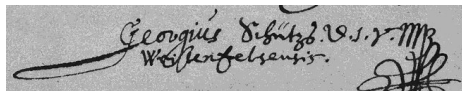 Georgius Schützs. D. s. r. mp
Weissenfelsensis.